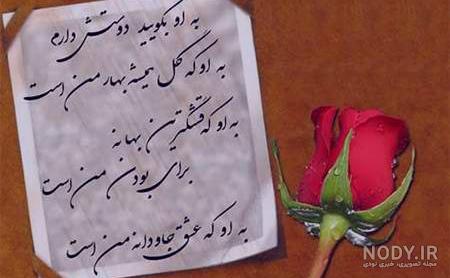 به او بگویید دوستش دارم
به او که گل همیشه بهار من است
به او که قشنگترین بهانه
برای بودن من است
به او که عشق جاودانه من است
NODY.IR
مجله تصویری، خبری نودی